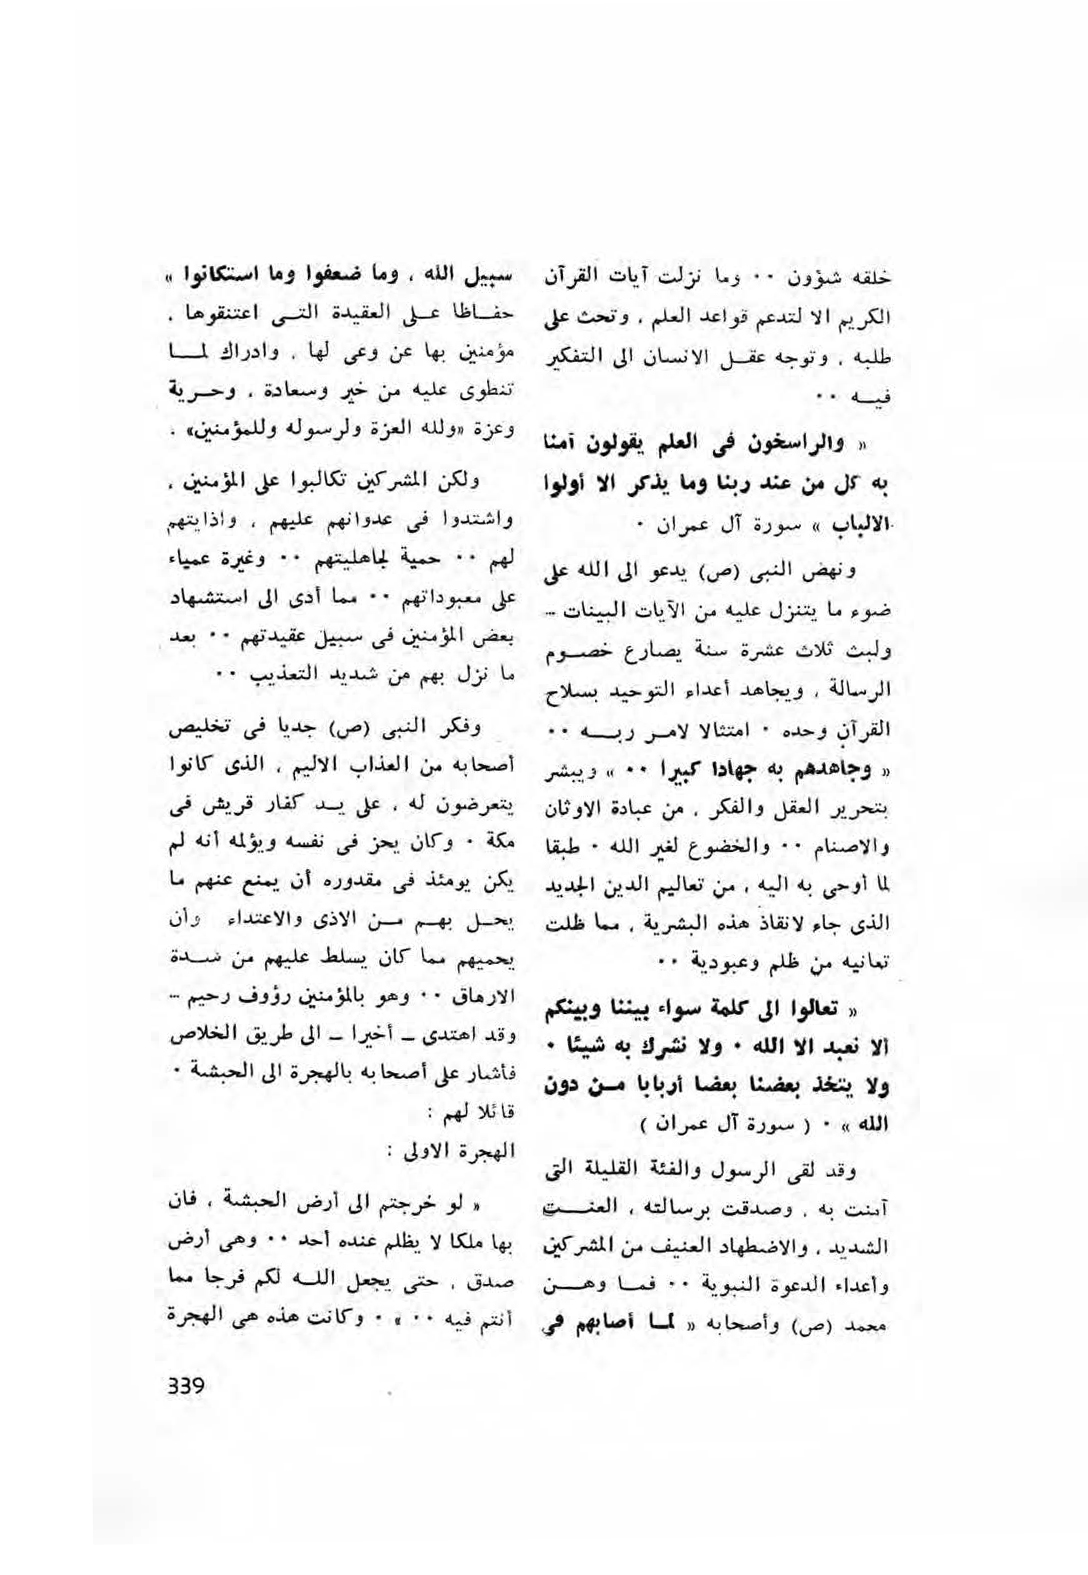 خلقه شؤون ٠٠ وما نزلت آيات القرآن
الكريم الا لتدعم قواعد العلم ، وتحث على
طلبه ، وتوجه عقل الانسان الى التفكير
فيه ٠٠
« والراسخون فى العلم يقولون آمنا
به كل من عند ربنا وما يذكر الا أولوا
الالباب » سورة آل عمران ٠
ونهض النبى (ص) يدعو الى الله على
ضوء ما يتنزل عليه من الآيات البينات ــ
ولبث ثلاث عشرة سنة يصارع خصوم
الرسالة ، ويجاهد أعداء التوحيد بسلاح
القرآن وحده ٠ امتثالا لامر ربه ٠٠
« وجاهدهم به جهادا كبيرا ٠٠ » ويبشر
بتحرير العقل والفكر ، من عبادة الاوثان
والاصنام ٠٠ والخضوع لغير الله ٠ طبقا
لما أوحى به اليه ، من تعاليم الدين الجديد
الذى جاء لانقاذ هذه البشرية ، مما ظلت
تعانيه من ظلم وعبودية ٠٠
« تعالوا الى كلمة سواء بيننا وبينكم
ألا نعبد الا الله ٠ ولا نشرك به شيئا ٠
ولا يتخذ بعضنا بعضا أربابا من دون
الله » ٠ ( سورة آل عمران )
وقد لقى الرسول والفئة القليلة التى
آمنت به ، وصدقت برسالته ، العنت
الشديد ، والاضطهاد العنيف من المشركين
وأعداء الدعوة النبوية ٠٠ فما وهن
محمد (ص) وأصحابه « لما أصابهم فى
سبيل الله ، وما ضعفوا وما استكانوا »
حفاظا على العقيدة التى اعتنقوها ،
مؤمنين بها عن وعى لها ، وادراك لما
تنطوى عليه من خير وسعادة ، وحرية
وعزة «ولله العزة ولرسوله وللمؤمنين» .
ولكن المشركين تكالبوا على المؤمنين ،
واشتدوا فى عدوانهم عليهم ، واذايتهم
لهم ٠٠ حمية لجاهليتهم ٠٠ وغيرة عمياء
على معبوداتهم ٠٠ مما أدى الى استشهاد
بعض المؤمنين فى سبيل عقيدتهم ٠٠ بعد
ما نزل بهم من شديد التعذيب ٠٠
وفكر النبى (ص) جديا فى تخليص
أصحابه من العذاب الاليم ، الذى كانوا
يتعرضون له ، على يد كفار قريش فى
مكة ٠ وكان يحز فى نفسه ويؤلمه أنه لم
يكن يومئذ فى مقدوره أن يمنع عنهم ما
يحل بهم من الاذى والاعتداء وأن
يحميهم مما كان يسلط عليهم من شدة
الارهاق ٠٠ وهو بالمؤمنين رؤوف رحيم ــ
وقد اهتدى ــ أخيرا ــ الى طريق الخلاص
فأشار على أصحابه بالهجرة الى الحبشة ٠
قائلا لهم :
الهجرة الاولى :
« لو خرجتم الى أرض الحبشة ، فان
بها ملكا لا يظلم عنده أحد ٠٠ وهى أرض
صدق ، حتى يجعل الله لكم فرجا مما
أنتم فيه ٠٠ » ٠ وكانت هذه هى الهجرة
339